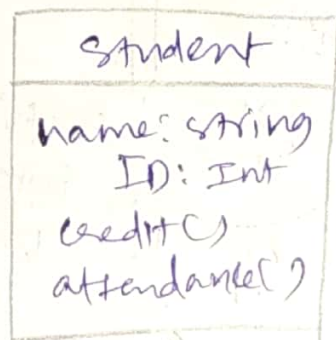 Student
name: string
ID: Int
credit()
attendance()